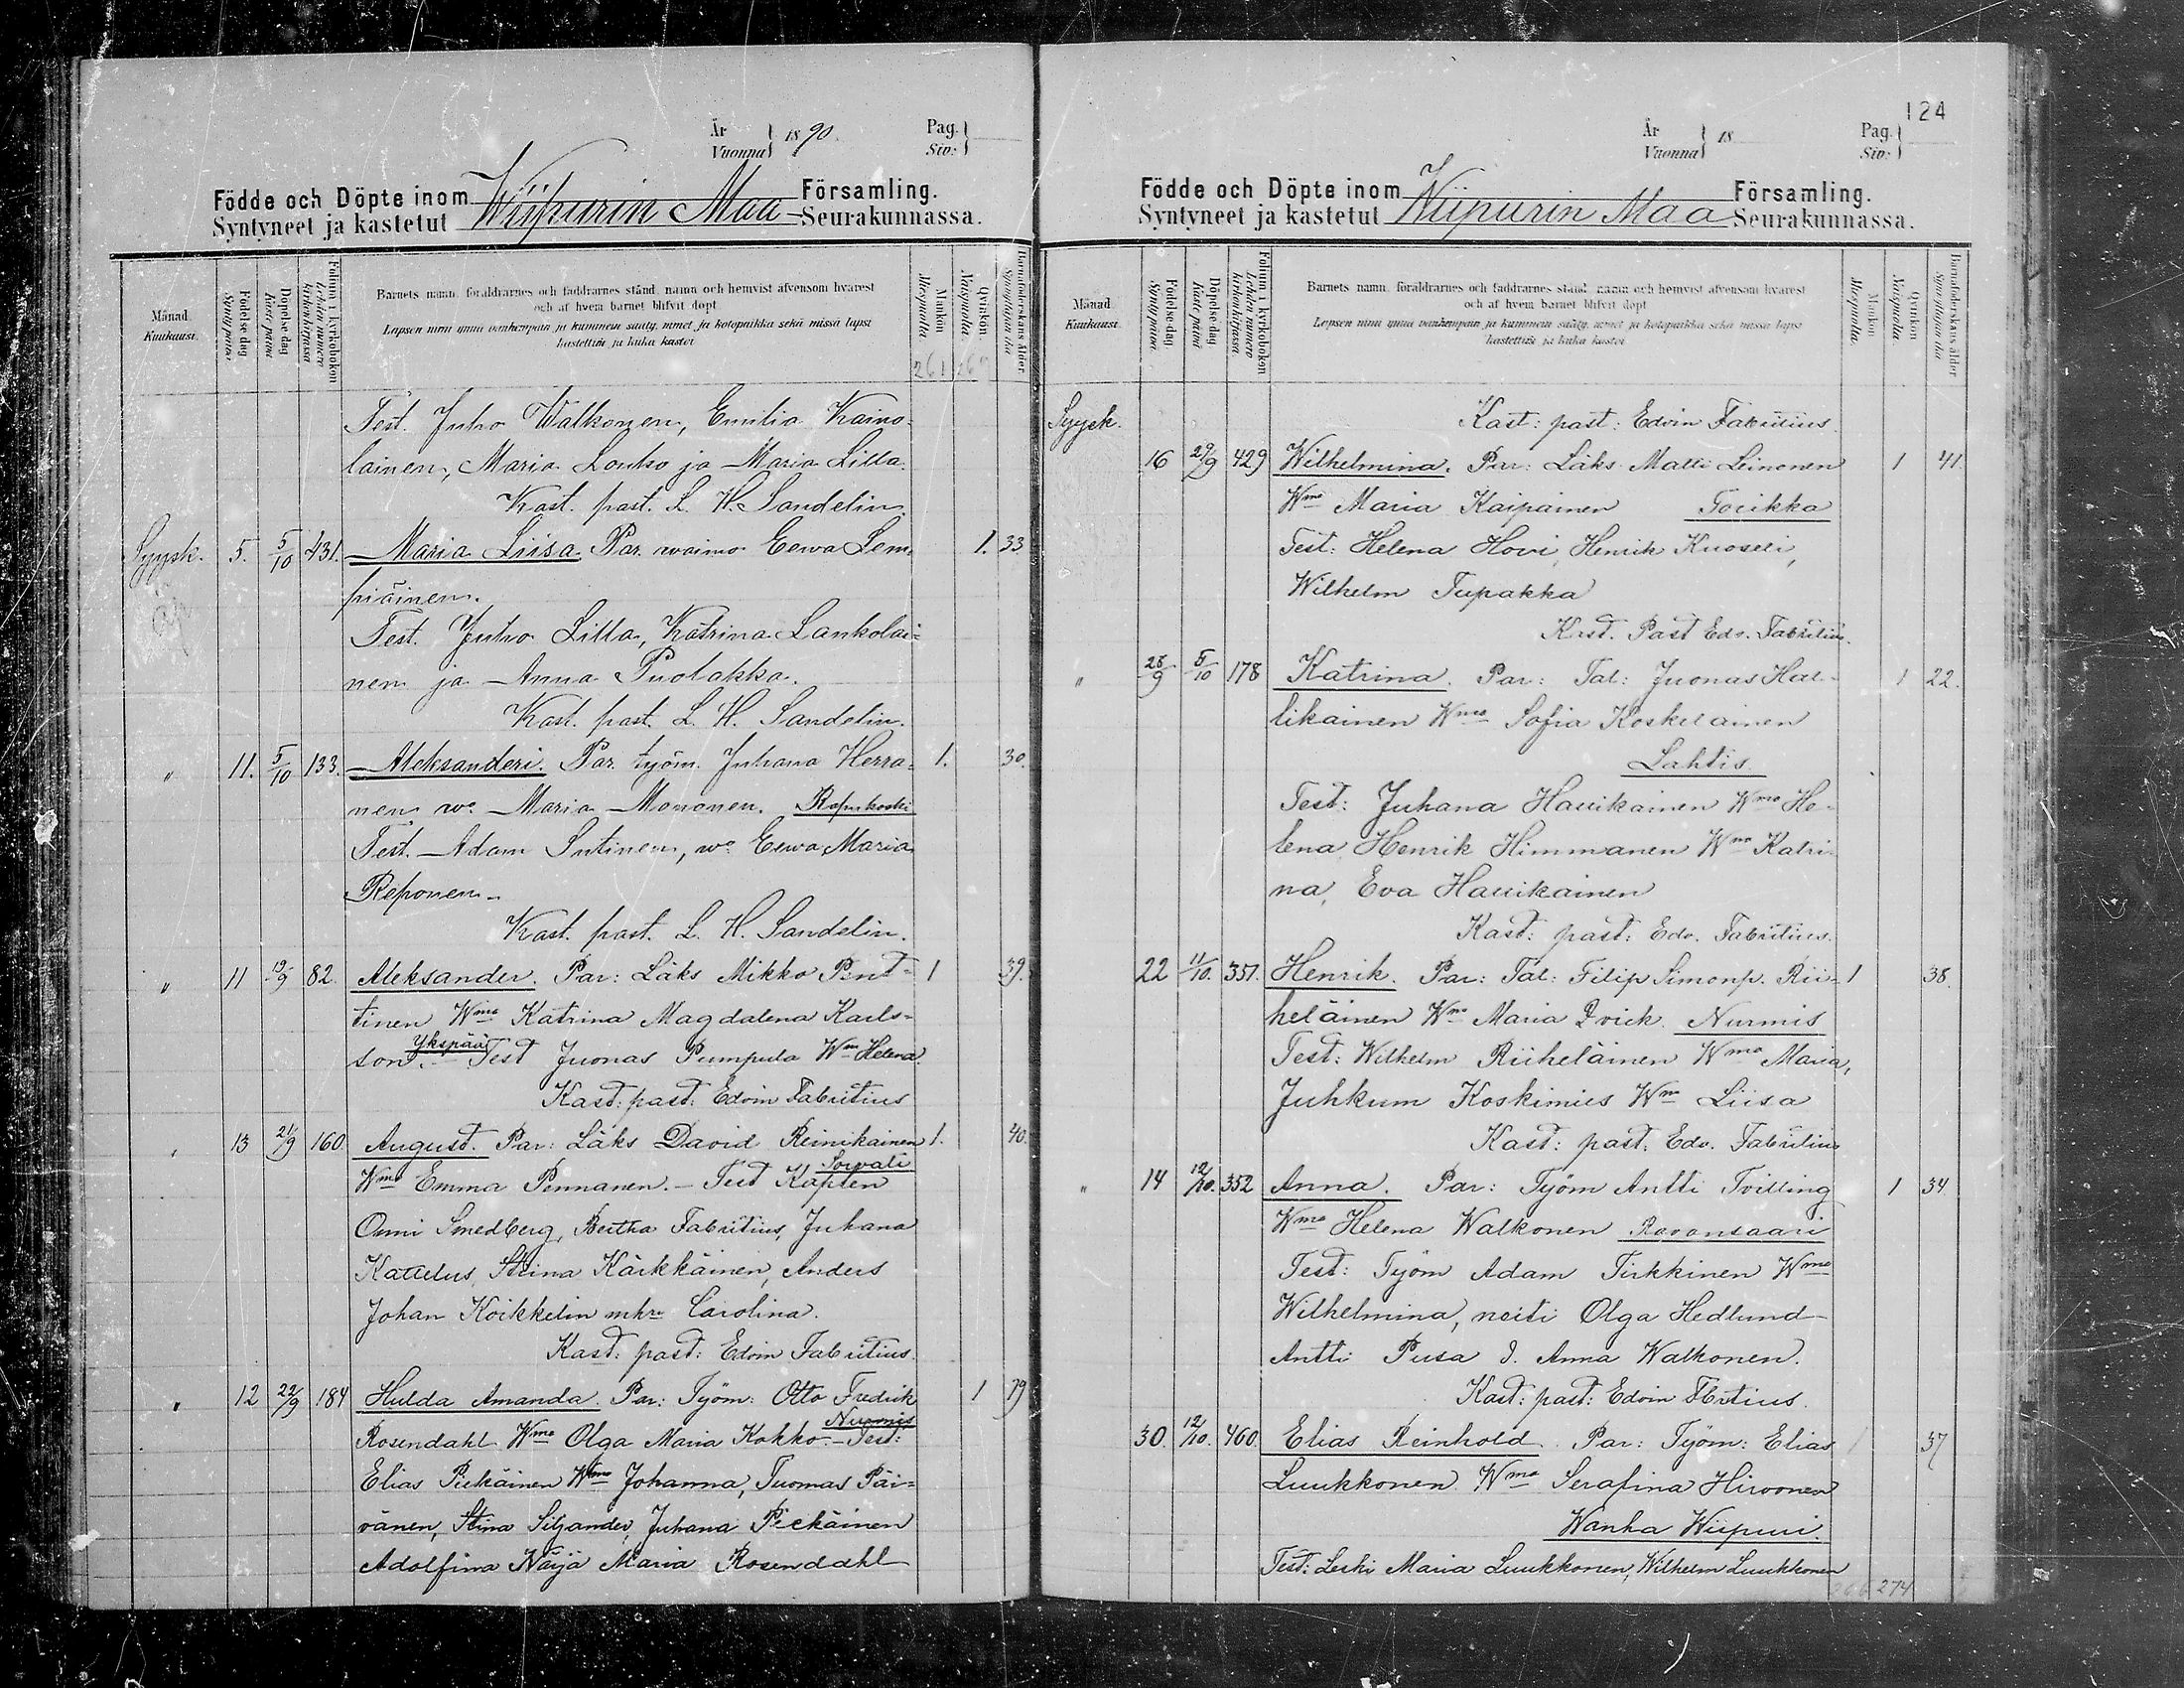 År
Vuonna } 1890.
Pag.
Siv: }
Födde och Döpte inom Wiipurin Maa Församling.
Syntyneet ja kastetut Seurakunnassa.
Månad. Kuukausi.
Födelse dag Syntypäivä
Döpelse dag Kaste päivä
Folium i kyrkoboken Lehden numero kirkonkirjassa
Barnets namn, föräldrarnes och faddrarnes stånd, namn och hemvist äfvensom hvarest
och af hvem barnet blifvit döpt
Lapsen nimi ynnä vanhempain ja kummein sääty, nimet ja kotopaikka sekä missä lapsi
kastettiin ja kuka kastoi
Mankön. Miespuolta. 261
Qvinkön. Vaimpuolta.
Barnaföderskans ålder Synnyttäjän ikä
Test. Juho Walkonen, Emilia Kaino-
lainen, Maria Louko ja Maria Lilla.
Kast. past. L. H. Sandelin.
Syysk. 5. 5/10 431. Maria Liisa Par. waimo Eewa Lem- 1. 33
piäinen.
Test. Juho Lilla, Katrina Lankolai-
nen ja Anna Puolakka.
Kast. past. L. H. Sandelin.
" 11. 5/10 133. Aleksanderi. Par. työm. Juhana Herra- 1. 30.
nen wo Maria Mononen.
Test. Adam Sutinen, wo Eewa Maria
Reponen.
Kast. past. L. H. Sandelin.
" 11 19/9 82. Aleksander. Par: Läks Mikko Pent- 1 39.
tinen Wmo Katrina Magdalena Karls-
Ykspää
son. - Test Juonas Pumpula Wmo Helena.
Kast: past: Edvin Fabritius
" 13 21/9 160 August. Par: Läks David Reinikainen 1. 40.
Sorvali
Wmo Emma Pennanen. - Test Kapten
Onni Smedberg, Bertha Fabritius, Juhana
Kattelus, Stina Kärkkäinen, Anders
Johan Koikkelin mhru Carolina.
Kast: past: Edvin Fabritius.
" 12 22/9 184 Hulda Amanda. Par: Työm: Otto Fredrik 1 19
Nurmis
Rosendahl Wmo Olga Maria Kokko. - Test:
Elias Piekäinen Wmo Johanna, Tuomas Päi-
vänen, Stina Siljander, Juhana Piekäinen
Adolfina Näijä Maria Rosendahl
124
År
Vuonna } 18
Pag.
Siv: }
Födde och Döpte inom Wiipurin Maa Församling.
Syntyneet ja kastetut Seurakunnassa.
Månad. Kuukausi.
Födelse dag. Synty päivä.
Döpelse dag. Kaste päivä
Folium i kyrkoboken Lehden numero kirkonkirjassa
Barnets namn, föräldrarnes och faddrarnes stånd, namn och hemvist äfvensom hvarest
och af hvem barnet blifvit döpt
Lapsen nimi ynnä vanhempain ja kummein sääty, nimet ja kotopaikka sekä missä lapsi
kastettiin ja kuka kastoi
Mankön Miespuolta.
Qvinkön Vaimpuolta.
Barnaföderskans ålder Synnyttäjän ikä
Syysk. Kast: past: Edvin Fabritius.
16 29/9 429 Wilhelmina. Par: Läks Matti Leinonen 1 41.
Wmo Maria Kaipainen Torikka
Test: Helena Hovi, Henrik Kuoseli,
Wilhelm Tupakka
Kast. Past Edv. Fabritius.
" 28/9 5/10 178 Katrina. Par: Tal: Juonas Hal- 1 22.
likainen Wmo Sofia Koskelainen
Lahtis
Test: Juhana Haurikainen Wmo He-
lena, Henrik Himmanen Wmo Katri-
na, Eva Haurikainen
Kast: past: Edv. Fabritius.
22 11/10. 351. Henrik. Par: Tal: Filip Simonp. Rii- 1 38.
heläinen Wmo Maria Nurmis
Test: Wilhelm Riiheläinen Wmo Maria,
Juhkum Koskimies Wmo Liisa
Kast: past: Edv. Fabritius
" 14 12/10. 352 Anna. Par: Työm Antti Tvilling 1 34
Wmo Helena Walkonen Ravansaari
Test: Työm Adam Tirkkinen Wmo
Wilhelmina, neiti Olga Hedlund
Antti Pusa J. Anna Walkonen.
Kast: past: Edvin Fbritius.
30. 12/10. 460. Elias Reinhold. Par: Työm: Elias 1 37
Luukkonen Wmo Serafina Hirvonen
Wanha Wiipuri.
Test: Leski Maria Luukkonen, Wilhelm Luukkonen
266 274